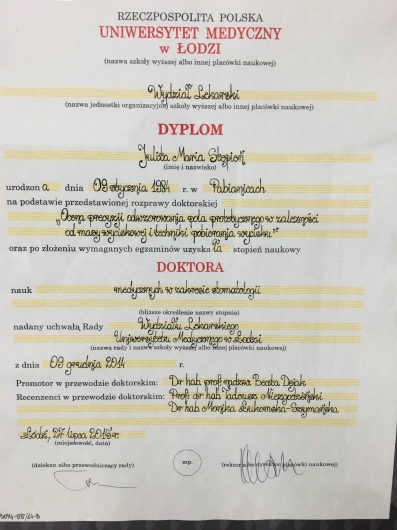 RZECZPOSPOLITA POLSKA
UNIWERSYTET MEDYCZNY
w ŁODZI
(nazwa szkoły wyższej albo innej placówki naukowej)
Wydział Lekarski
(nazwa jednostki organizacyjnej szkoły wyższej albo innej placówki naukowej)
DYPLOM
Julita Maria Stępień
(imię i nazwisko)
urodzona dnia 09 stycznia 1984 r. w Pabianicach
na podstawie przedstawionej rozprawy doktorskiej
„Ocena precyzji odwzorowania pola protetycznego w zależności
od masy wyciskowej i techniki pobierania wycisku"
oraz po złożeniu wymaganych egzaminów uzyskała stopień naukowy
DOKTORA
nauk medycznych w zakresie stomatologii
(bliższe określenie nazwy stopnia)
nadany uchwałą Rady Wydziału Lekarskiego
Uniwersytetu Medycznego w Łodzi
(nazwa rady i nazwa szkoły wyższej albo innej placówki naukowej)
z dnia 09 grudnia 2014 r.
Promotor w przewodzie doktorskim: Dr hab. prof. nadzw. Beata Dejak
Recenzenci w przewodzie doktorskim: Prof. dr hab. Tadeusz Niezgodziński
Dr hab. Monika Łukomska-Szymańska
Łódź, 27 lipca 2015 r.
(miejscowość, data)
(dziekan albo przewodniczący rady)
mp.
(rektor albo dyrektor placówki naukowej)